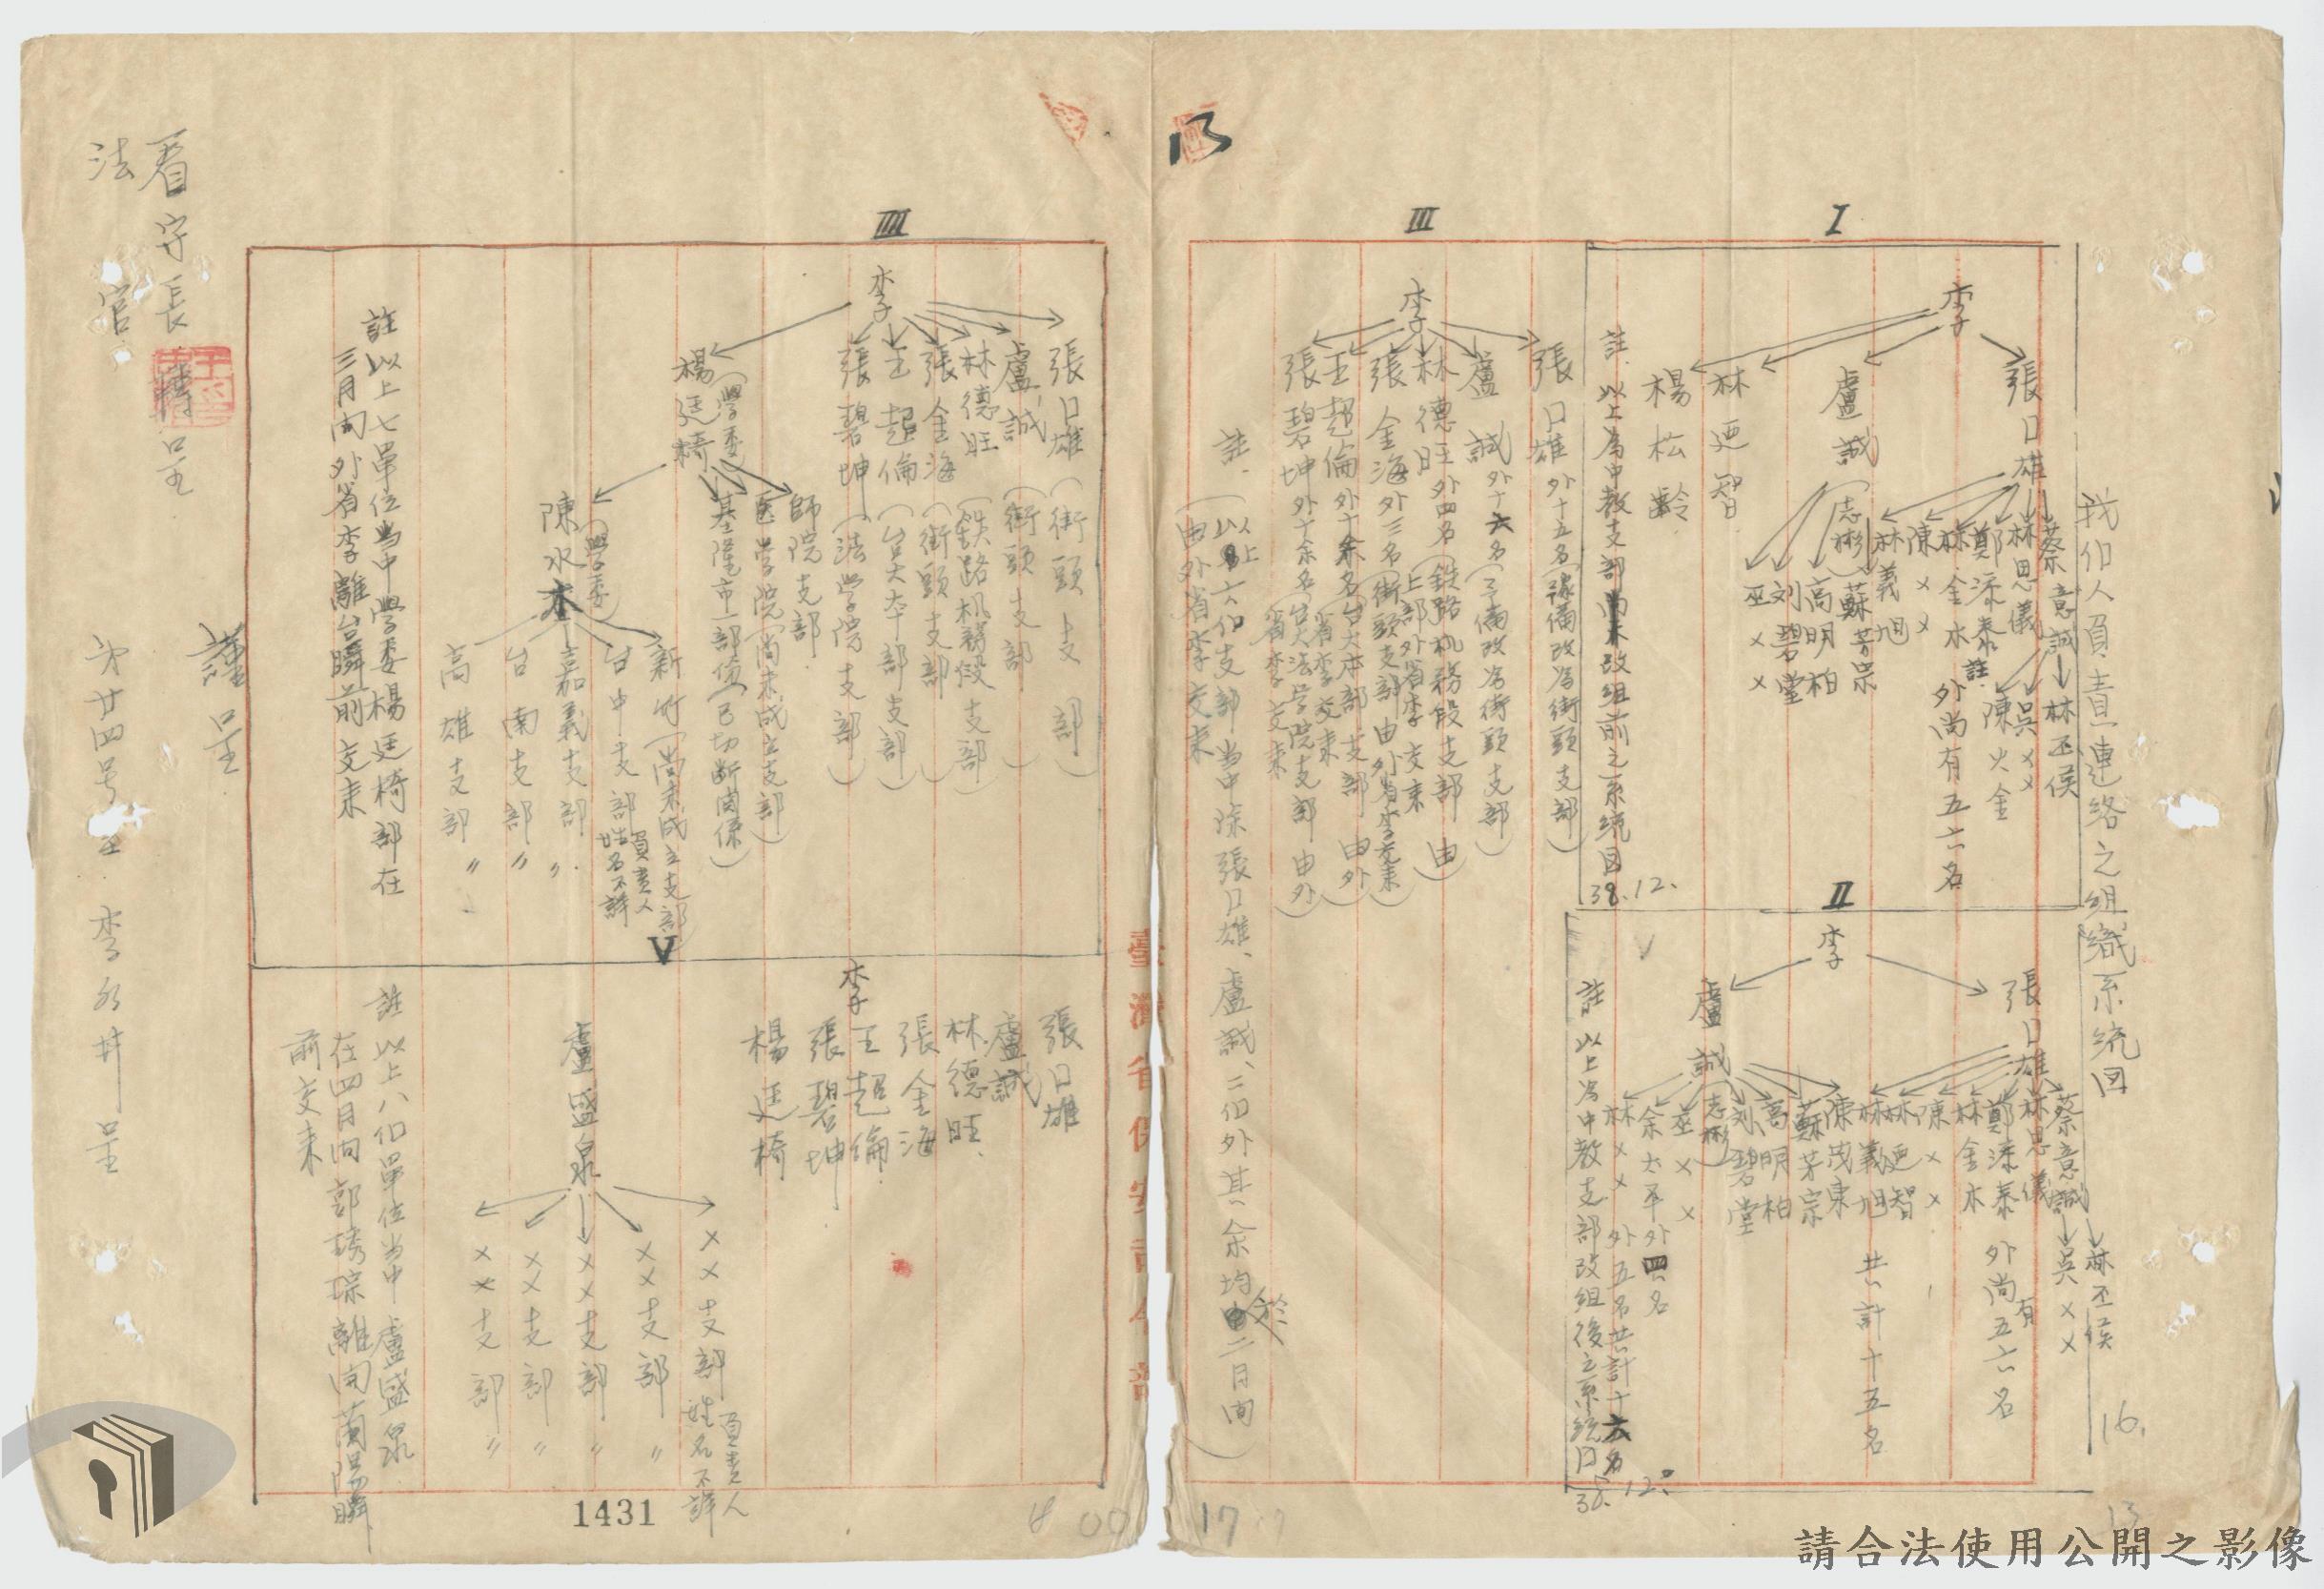 13
我们人員責連絡之組織系統図
16.
I
李
張日雄
蔡意誠
林丕侯
吳××
林思儀
陳火金
鄭添泰
註.
林金木
外尚有五六名
陳××
林義旭
盧誠
(志彬)
蘇芳宗
高明柏
刘碧堂
巫××
林迺智
楊松齡
註.以上為中教支部尚未改組前之系統図
38.12.
II
李
張日雄
蔡意誠
林丕侯
吳××
林思儀
鄭添泰
外尚有五六名
林金木
陳××
林迺智
林義旭
共計十五名
盧誠
陳茂東
蘇芳宗
高明柏
刘碧堂
(志彬)
巫××
余太平
外四名
林××
外五名共計十六名
註以上為中教支部改組後之系統図
38.12.
III
李
張日雄外十五名(豫備改為街頭支部)
盧誠外十六名(予備改為街頭支部)
林德旺外四名(鉄路机務段支部由
上部外省李交来
張金海外三名(街頭支部由外省李交来)
王超倫外十余名台大本部支部由外
省李交来
張碧坤外十余名(台大法学院支部由外)
省李交来
註.(以上六们支部当中除張日雄、盧誠、二们外其余均於二月间)
由外省李交来
17
臺灣省保安司令部
IIII
李
張日雄(街頭支部)
盧誠(街頭支部)
林德旺(鉄路机務段支部)
張金海(街頭支部)
王超倫(台大本部支部)
張碧坤(法学院支部)
楊廷椅
(學委)
師院支部.
医学院(尚未成立支部)
基隆市一部份(已切断関係)
陳水木
(學委)
新竹(尚未成立支部)
台中支部負責人姓名不詳
嘉義支部〃
台南支部〃
高雄支部〃
註以上七單位当中學委楊廷椅部在
三月间外省李離台瞬前交来
V
李
張日雄
盧誠
林德旺
張金海
王超倫
張碧坤
楊廷椅
盧盛泉
××支部負責人姓名不詳
××支部〃
××支部〃
××支部〃
××支部〃
註以上八们單位当中盧盛泉
在四月间郭琇琮離開蘭陽瞬
前交来
謹呈
看守長轉呈
法官
第廿四号
李水井呈
1431
請合法使用公開之影像